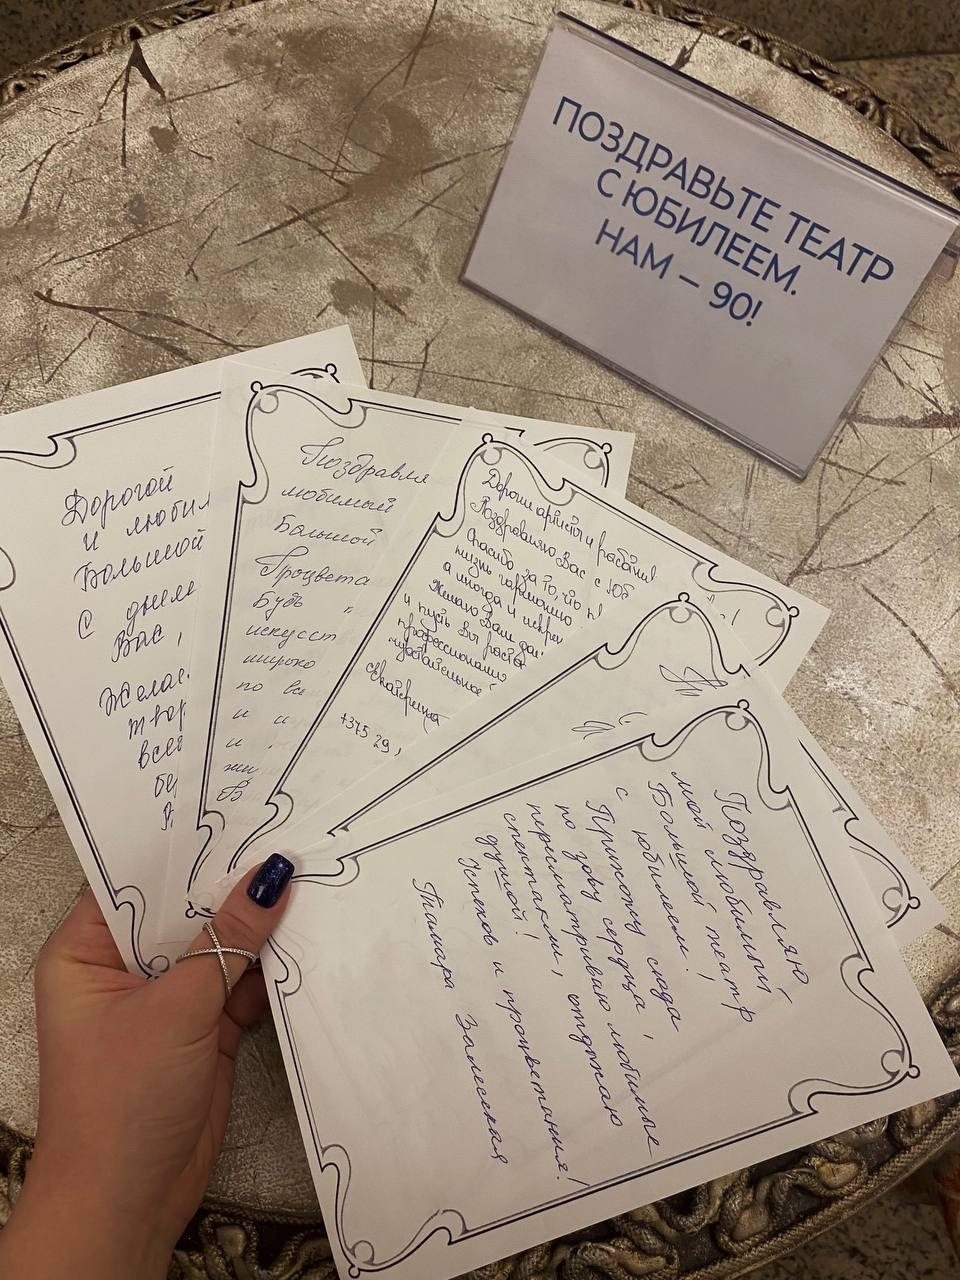 ПОЗДРАВЬТЕ ТЕАТР
С ЮБИЛЕЕМ.
НАМ – 90!
Дорогой
и любил
Большой
С днем
Вас,
Желаем
твор
всег
Поздравля
любимый
Большой
Процвета
Будь
искусст
широко
по все
и и
и
жи
В
Дорогие артисты и работники!
Поздравляю Вас с юб
Спасибо за то, что п
жизнь гармонично
а иногда и искрен
Желаю Вам дал
и пусть Вы раста
профессионализ
чувствительное
Екатерина
+375 29,
Поздравляю
мой любимый
Большой театр
с юбилеем!
Прихожу сюда
по зову сердца,
пересматриваю любимые
спектакли, отдыхаю
душой!
Успехов и процветания!
Тамара Залесская